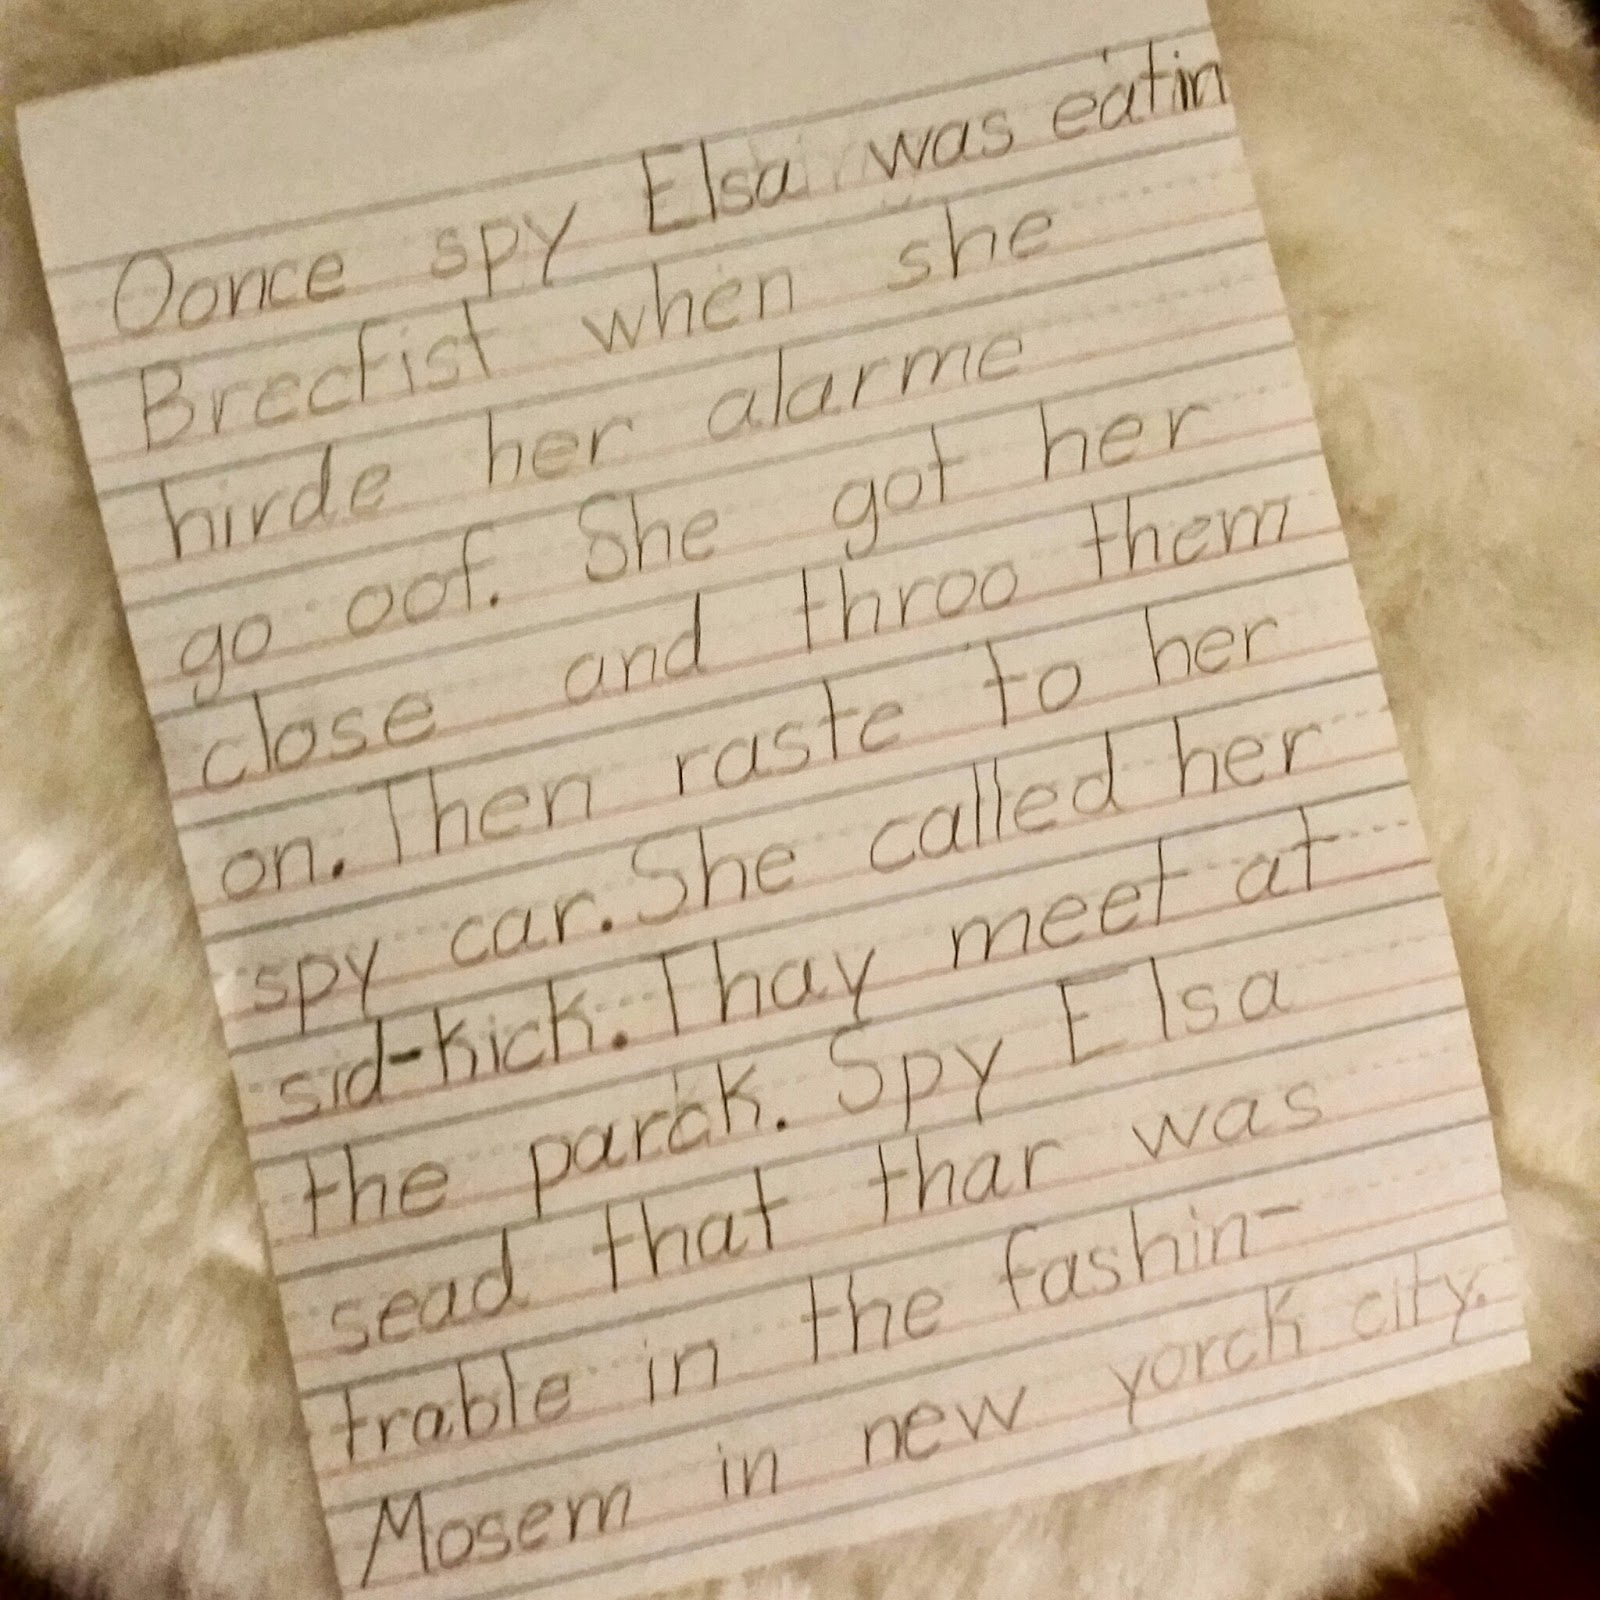 Oonce spy Elsa was eatin
Brecfist when she
hirde her alarme
go oof. She got her
close and throo them
on. Then raste to her
spy car. She called her
sid-kick. Thay meet at
the parck. Spy Elsa
sead that thar was
trable in the fashin-
Mosem in new yorck city.